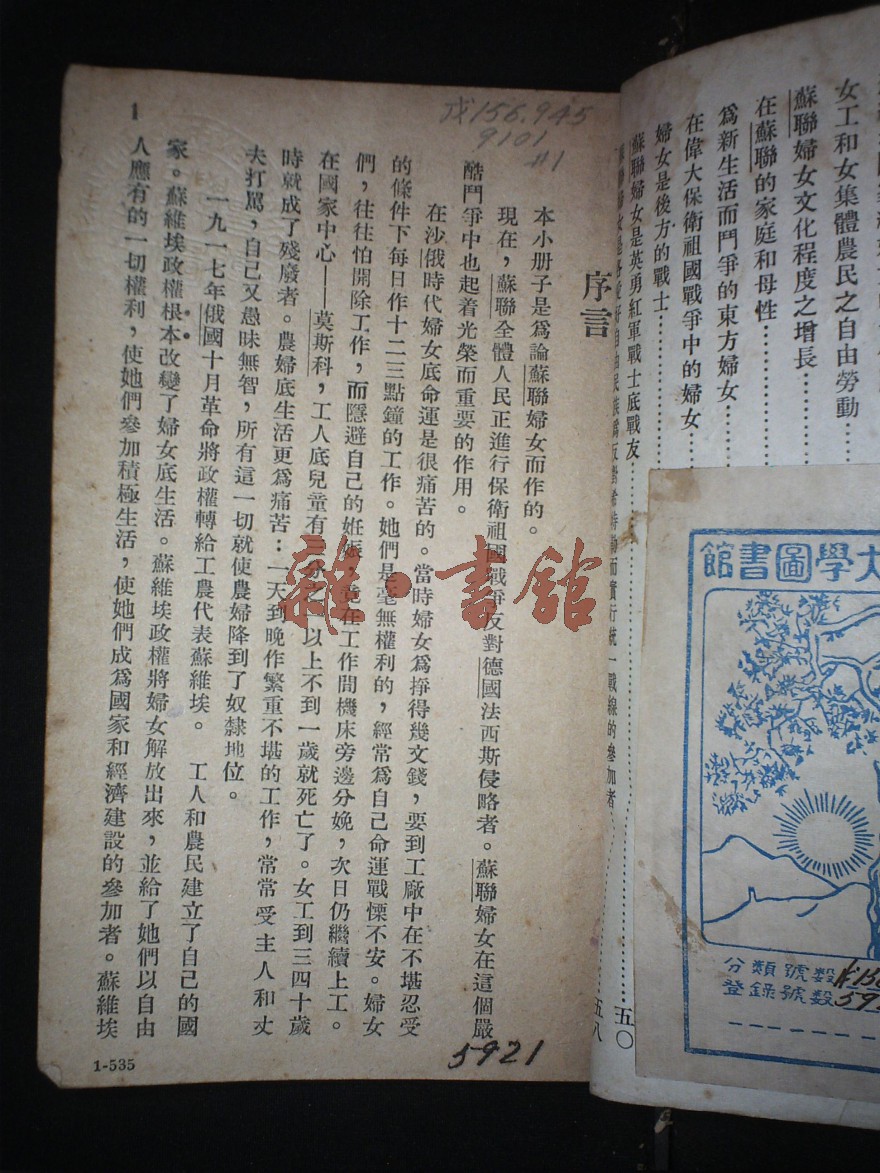 女工和女集體農民之自由勞動
蘇聯婦女文化程度之增長
在蘇聯的家庭和母性
爲新生活而鬥爭的東方婦女
在偉大保衛祖國戰爭中的婦女
婦女是後方的戰士
蘇聯婦女是英勇紅軍戰士底戰友 五〇
五八
大學圖書館
分類號數
登錄號數
戊156.945
9101
#1
序言
本小册子是爲論蘇聯婦女而作的。
現在，蘇聯全體人民正進行保衛祖國戰爭反對德國法西斯侵略者。蘇聯婦女在這個嚴
酷鬥爭中也起着光榮而重要的作用。
在沙俄時代婦女底命運是很痛苦的。當時婦女爲掙得幾文錢，要到工廠中在不堪忍受
的條件下每日作十二三點鐘的工作。她們是毫無權利的，經常爲自己命運戰慄不安。婦女
們，往往怕開除工作，而隱避自己的姙娠，竟在工作間機床旁邊分娩，次日仍繼續上工。
在國家中心——莫斯科，工人底兒童有三分之二以上不到一歲就死亡了。女工到三四十歲
時就成了殘廢者。農婦底生活更爲痛苦：一天到晚作繁重不堪的工作，常常受主人和丈
夫打罵，自己又愚昧無智，所有這一切就使農婦降到了奴隸地位。
一九一七年俄國十月革命將政權轉給工農代表蘇維埃。 工人和農民建立了自己的國
家。蘇維埃政權根本改變了婦女底生活。蘇維埃政權將婦女解放出來，並給了她們以自由
人應有的一切權利，使她們參加積極生活，使她們成爲國家和經濟建設的參加者。蘇維埃
1
1-535
5921
雜·書館